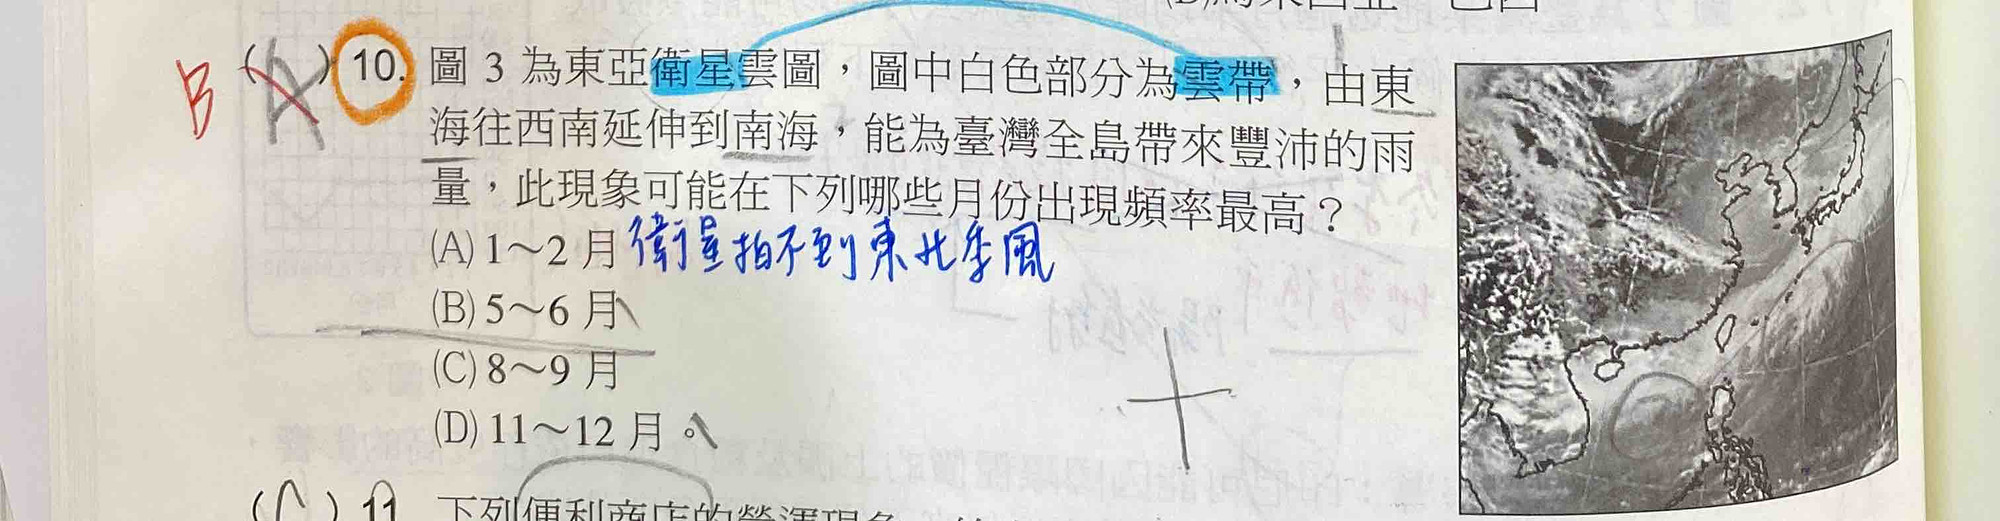 B ( ) 10. 圖 3 為東亞衛星雲圖，圖中白色部分為雲帶，由東
海往西南延伸到南海，能為臺灣全島帶來豐沛的雨
量，此現象可能在下列哪些月份出現頻率最高？
(A) 1～2 月 衛星拍不到東北季風
(B) 5～6 月
(C) 8～9 月
(D) 11～12 月。
( C ) 11. 下列便利商店的營運現象